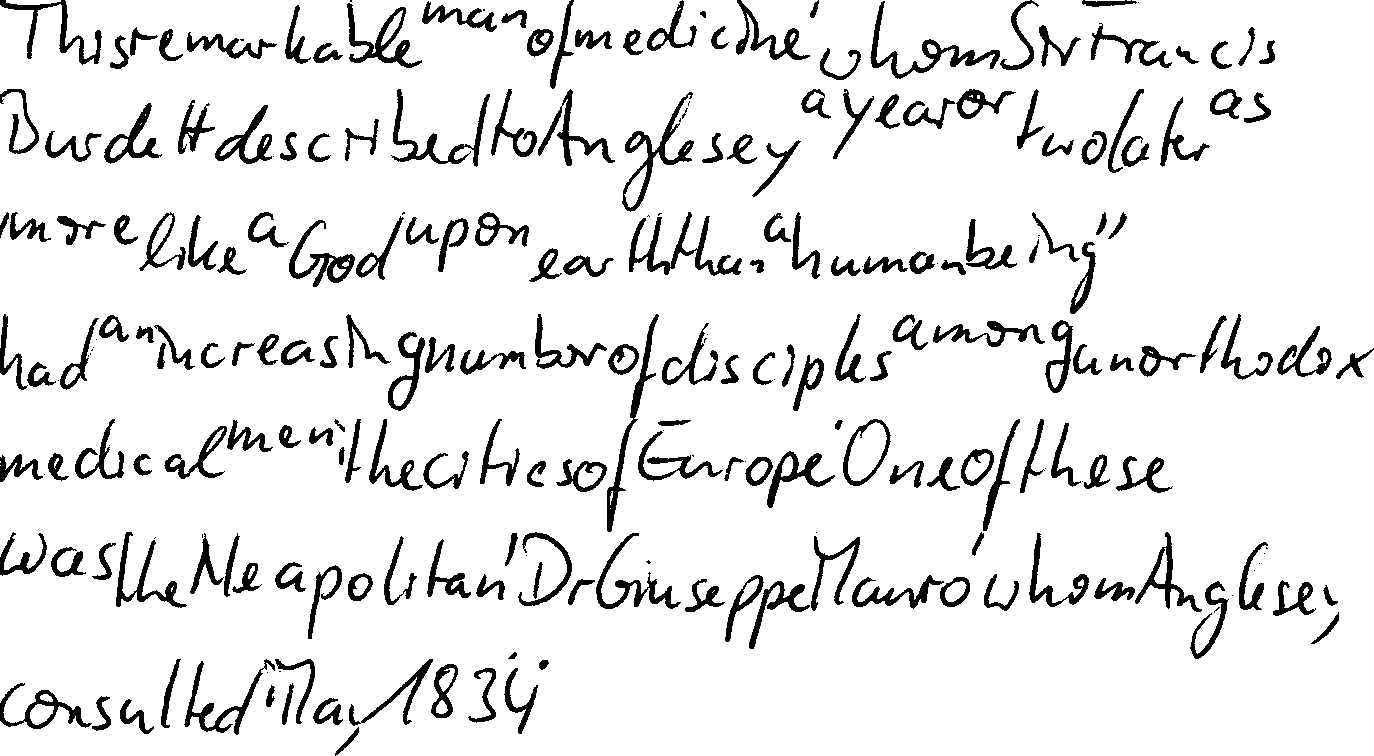 This remarkable man of medicine, whom Sir Francis
Burdett described to Anglesey a year or two later as
more like a God upon earth than a human being"
had an increasing number of disciples among unorthodox
medical men in the cities of Europe. One of these
was the Neapolitan, Dr Giuseppe Mauro, whom Anglesey
consulted in May, 1834.